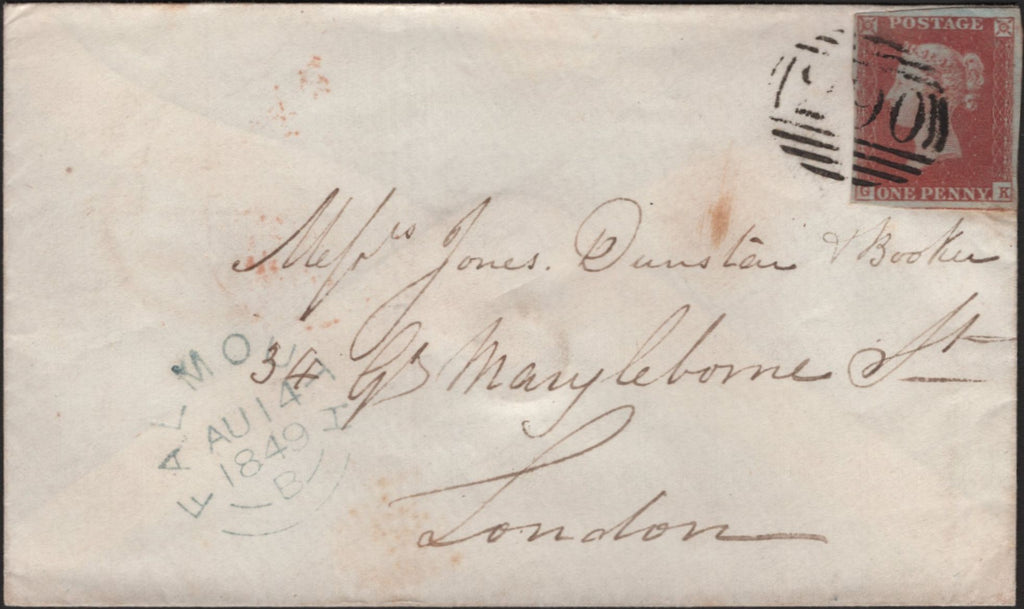 POSTAGE
G ONE PENNY. K
Messrs Jones. Dunstan & Booker
34 Gt Marylebone St
London
FALMOUTH
AU 14
1849
B